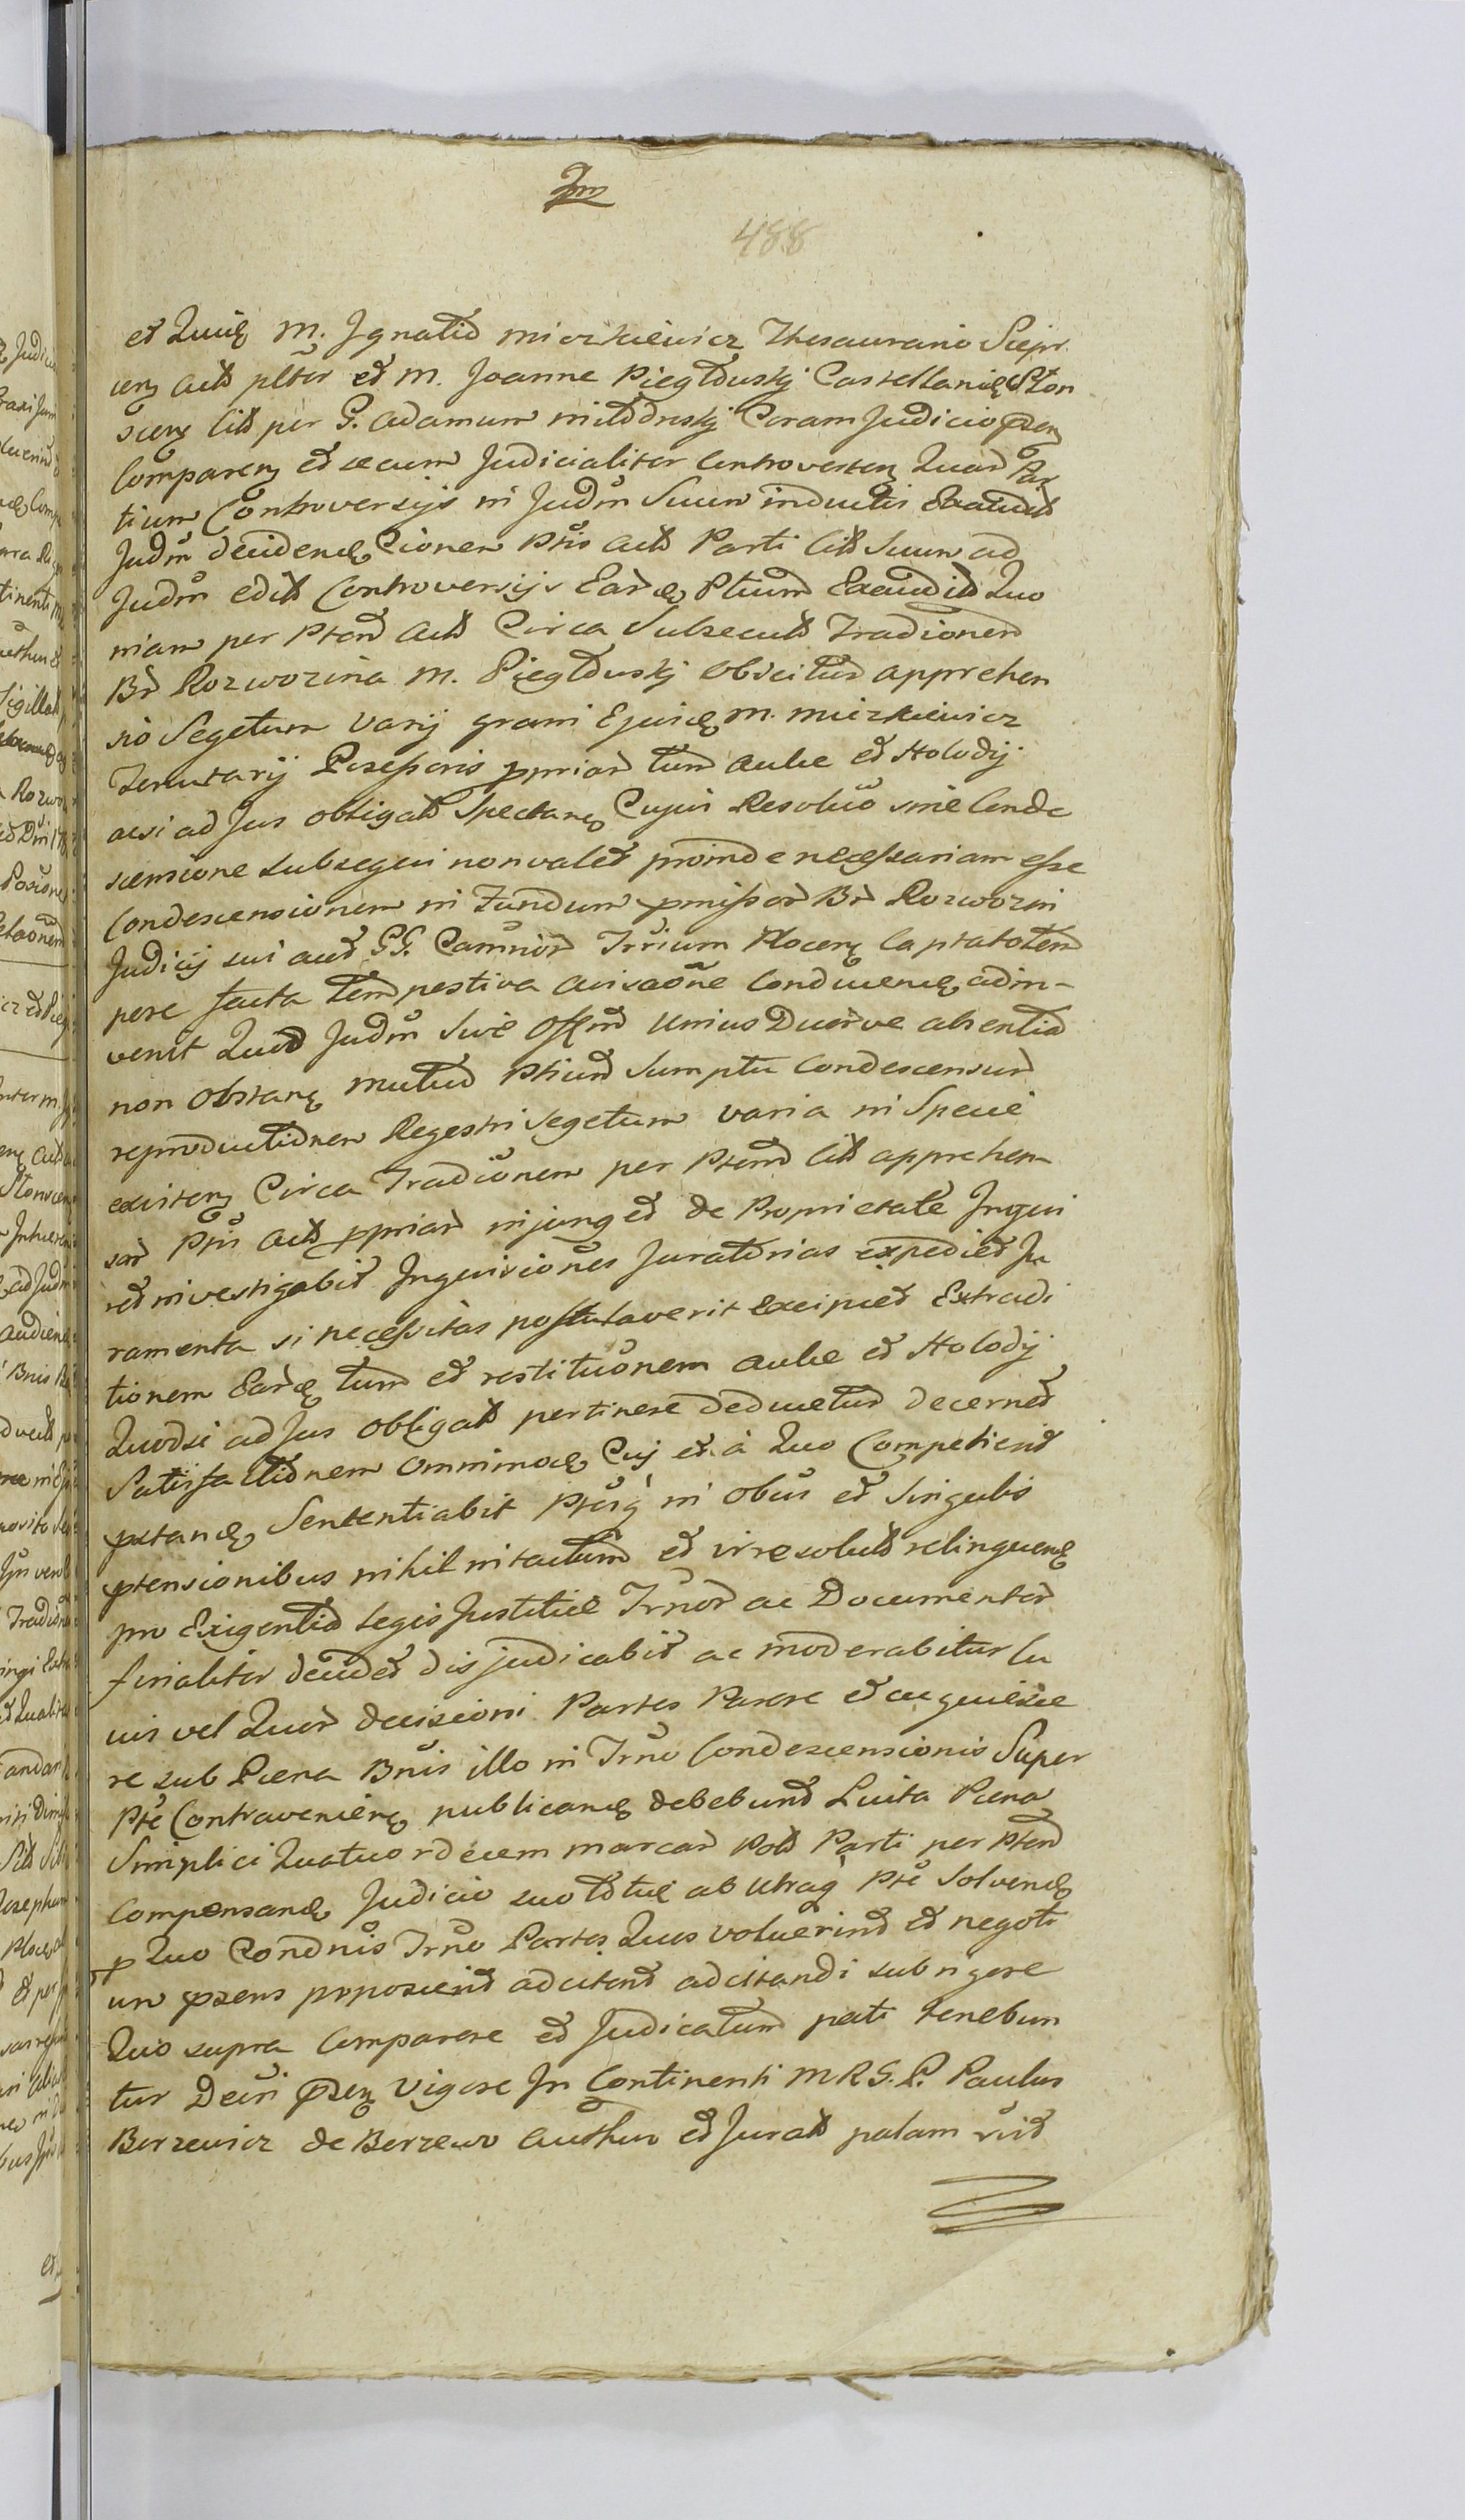 488
et M. Ignatio Miczkiewicz Thesaurario Sierp
cen Actt et M. Joanne Piegłowskj Castellanid Słon
scen Citt per G. Adamum Coram Judicio pnn
Comparen et secum Judicialiter Controverten Quar Par
tium Controversijs in Judm Suum inductis Exauditt
Judm deciden Cionem Ptis Actt Parti Citt Suum ad
Judm editt Controversijs Ear Ptium Exauditt Quo
niam per Ptem Actt Circa Subsecutt Traditionem
Br Rozwozina M. Piegłowskj Obiicitur apprehen
sio Segetum Varij grani Ejusd M. Miczkiewicz
Tenutarij Possessoris ppriar tum Aulae et Holodij
acsi ad Jus obligatt Spectan Cujus Resolutio sine Conde
scensione subsequi non valet proinde necessariam esse
Condescensionem in Fundum pmissor Br Rozwozin
Judicij sui aut GG. Camrior Trrium Plocen Captato tem
pore facta tempestiva avisatione Conducend adin-
venit Quod Judm Sive Offm Unius Duorve absentia
non Obstan mutuo Ptium Sumptu Condescensur
reproductionem Regestri Segetum varia in Specie
existen Circa Traditionem per Ptem Citt apprehen
sar Pti Actt ppriar injunget de Proprietate Inqui
ret investigabit Inquisitiones Juratorias expediet Ju
ramenta si necessitas postulaverit Excipiet Extradi
tionem Ear tum et restitutionem Aulae et Holodij
Quodsi ad Jus obligatt pertinere deducetur decernet
Satisfactionem omnimod Cuj et à Quo Competierit
pstand Sententiabit Ptesq in Obus et Singulis
ptensionibus nihil intactum et irresolutt relinquend
pro Exigentia Legis Justitiae Trnor ac Documentor
finaliter decidet disjudicabit ac moderabitur Cu
uis vel Quor decisioni Partes Parere et acquiesce
re sub Poena Bnis illo in Trno Condescensionis Super
Pte Contravenien publicand debebunt Luita Poena
Simplici Quatuordecim marcar Pol Parti per Ptem
Compensand Judicio suo ab utraq Pte Solvend
p Quo Condnis Trno Partes Quos voluerint et negoti
um pzens pposcerit adcitent adcitandi sub rigore
Quo supra Comparere et Judicatum pati tenebun
tur Decti pzen Vigore In Continenti M R G. P. Paulus
Berzewicz de Berzewo et Jurat palam